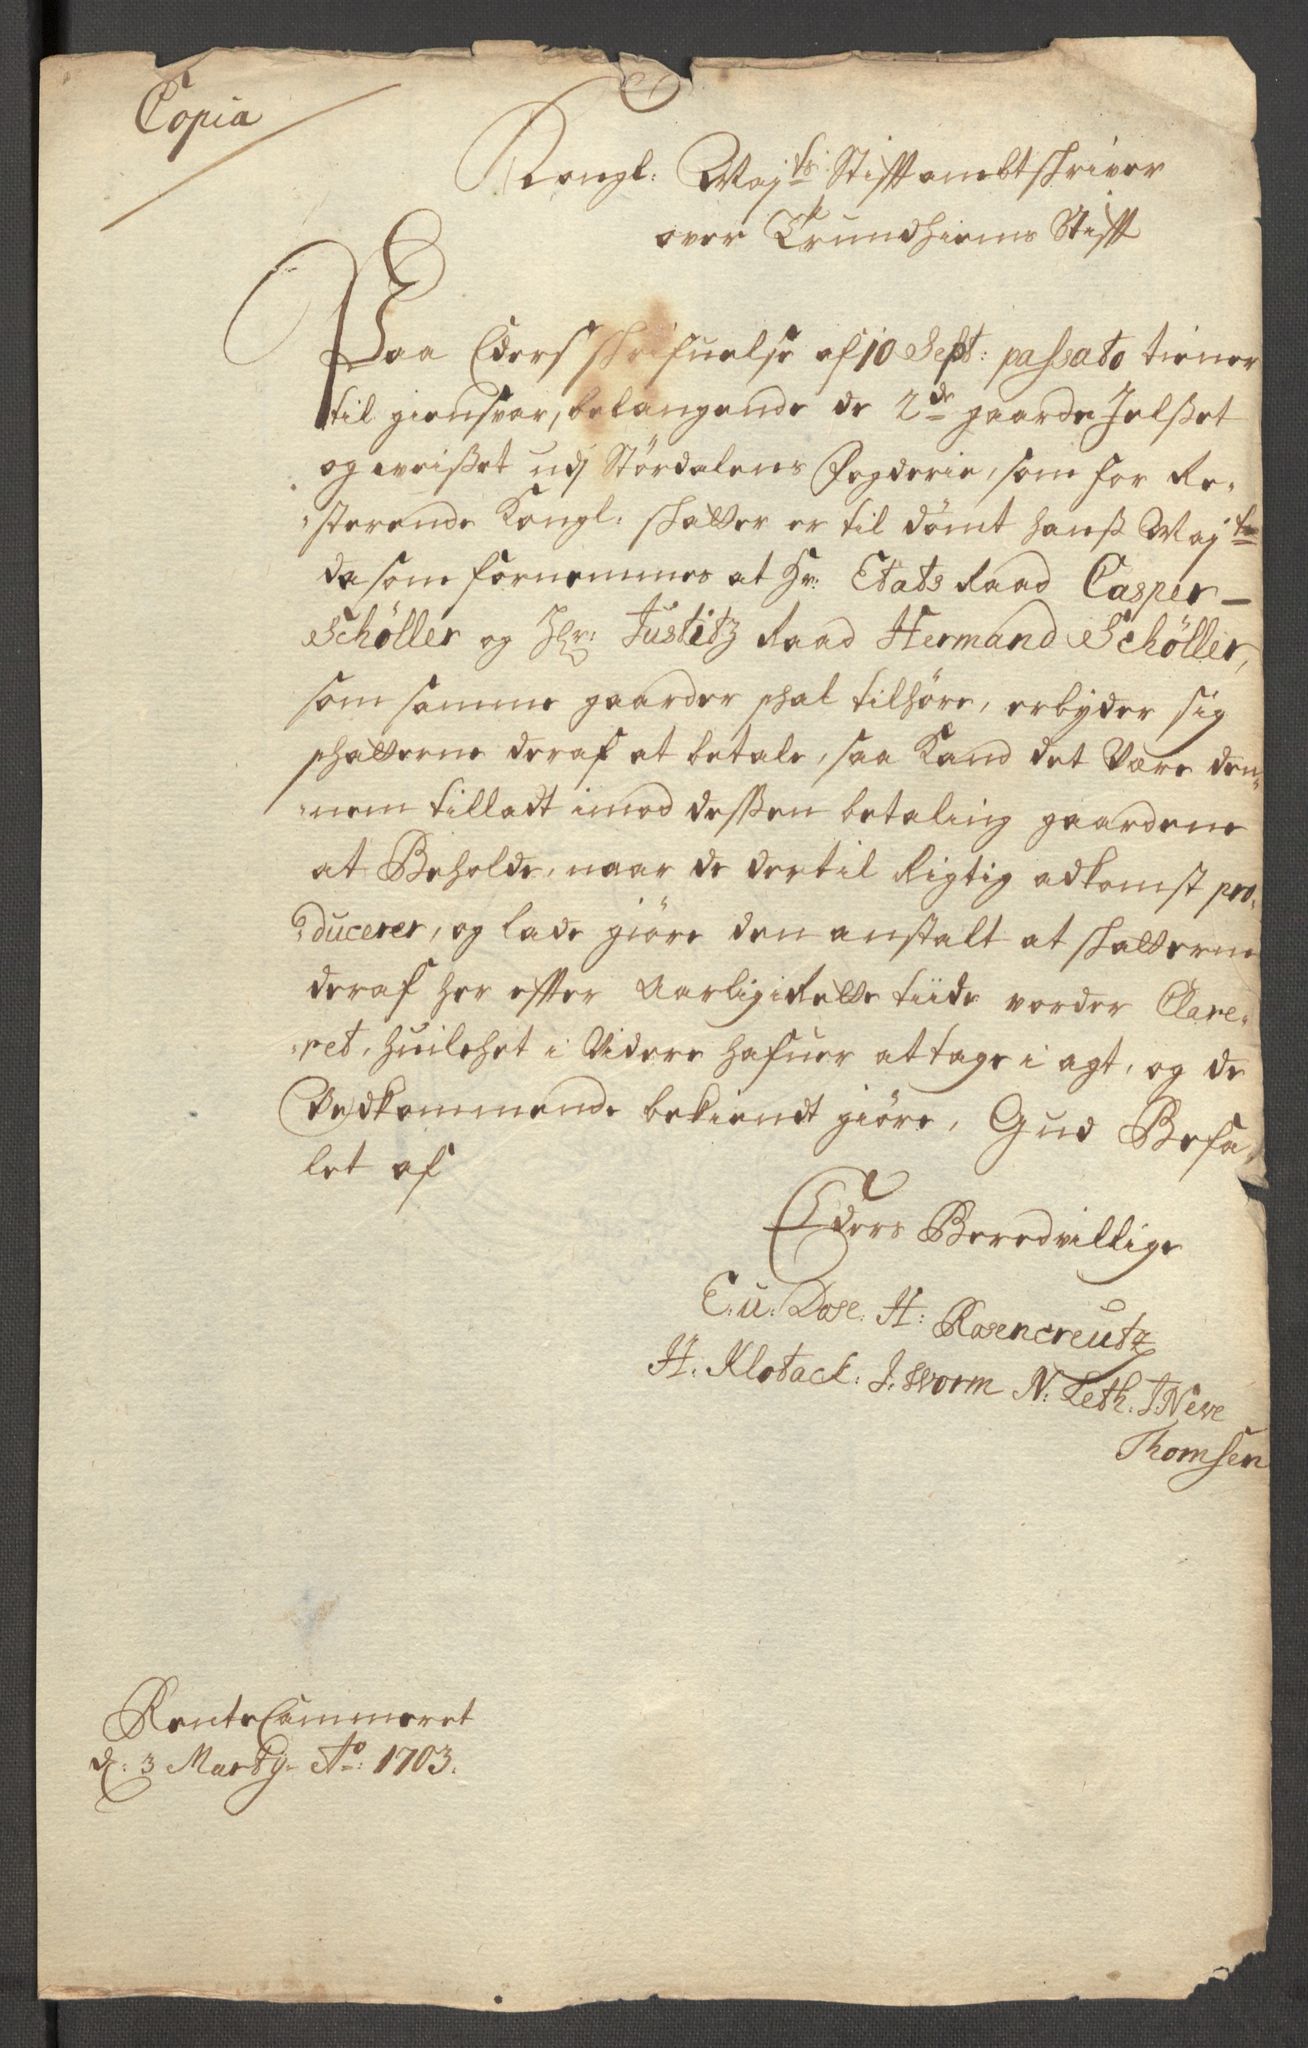 Copia
Kongl: Maj:ts Stiftambtskriver
over Trundhiems Stift
Paa Eders skrifuelse af 10 Sept: passato tiener
til giensvar, belangende de 2de gaarde Jelßet
og Aveißet udj Stördalens fogderie, som for Re-
sterende Kongl: skatter er til dömt hanß Maj:ts
da som fornemmes at Hr: Etats Raad Casper
Schöller og Hr: Justitz Raad Hermand Schöller,
som samme gaarder skal tilhöre, erbyder sig
skatterne deraf at betale, saa kand det være den-
nem tilladt imod deßen betaling gaardene
at Beholde, naar de dertil Rigtig adkomst pro-
ducerer, og lade giöre den anstalt at skatterne
deraf her efter Aarlig i Rette tiide vorder Clare-
ret, huilchet i videre hafuer at tage i agt, og de
Vedkommende bekiendt giöre, Gud Befa-
let af
Eders Beredvillige
C: u: Dose: H: Rosencreutz
H: Klotack: J: Worm N: Leth: T: Neve
Thomsen
RenteCammeret
d: 3 Martij Ao: 1703.